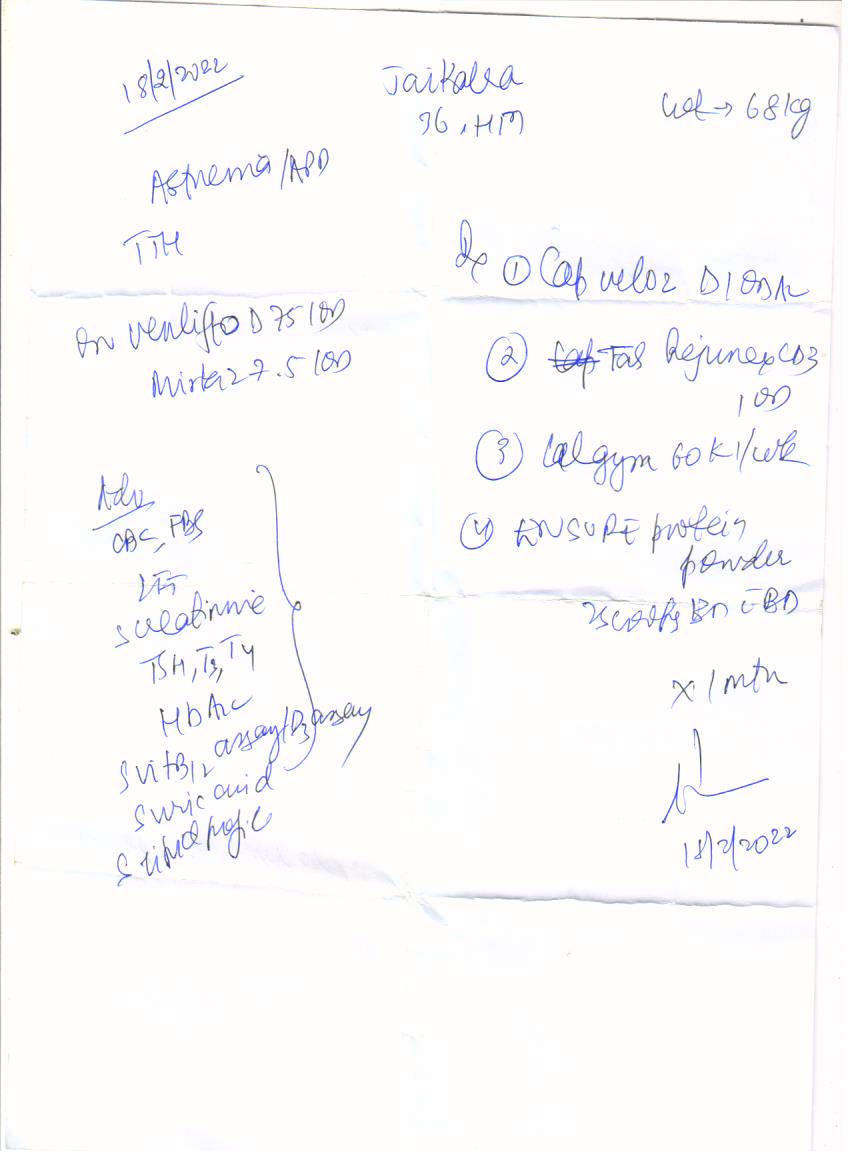 18/2/2022
Jaikalra
36, HM
wt → 68 kg
Asthenia/APD
TTH
On Venlifto D 75 1 OD
Mirtaz 7.5 1 OD
Adv
CBC, FBS
LFT
S creatinine
TSH, T3, T4
HbA1c
S Vit B12 assay/D3 assay
S uric acid
S lipid profile
Rx ① Cap veloz D 1 OD
② Tab Rejunex CD3
1 OD
③ Calgym 60K 1/wk
④ ENSURE protein
powder
2 scoops BD
x 1 mth
18/2/2022